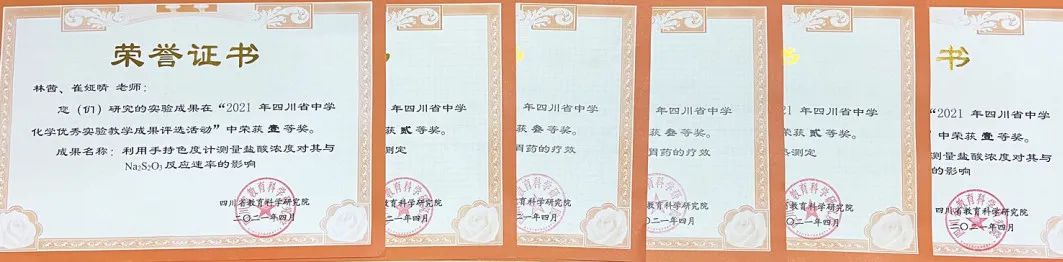 荣誉证书
林茜、崔娅晴 老师：
您（们）研究的实验成果在“2021 年四川省中学
化学优秀实验教学成果评选活动”中荣获 壹 等奖。
成果名称：利用手持色度计测量盐酸浓度对其与
Na₂S₂O₃反应速率的影响
四川省教育科学研究院
二〇二一年四月
年四川省中学
获 贰 等奖。
测定
教育科学研究院
二一年四月
年四川省中学
获 叁 等奖。
胃药的疗效
教育科学研究院
二一年四月
年四川省中学
获 叁 等奖。
胃药的疗效
教育科学研究院
二一年四月
年四川省中学
荣获 贰 等奖。
测定
省教育科学研究院
二一年四月
书
“2021 年四川省中学
”中荣获 壹 等奖。
测量盐酸浓度对其与
的影响
四川省教育科学研究院
二〇二一年四月